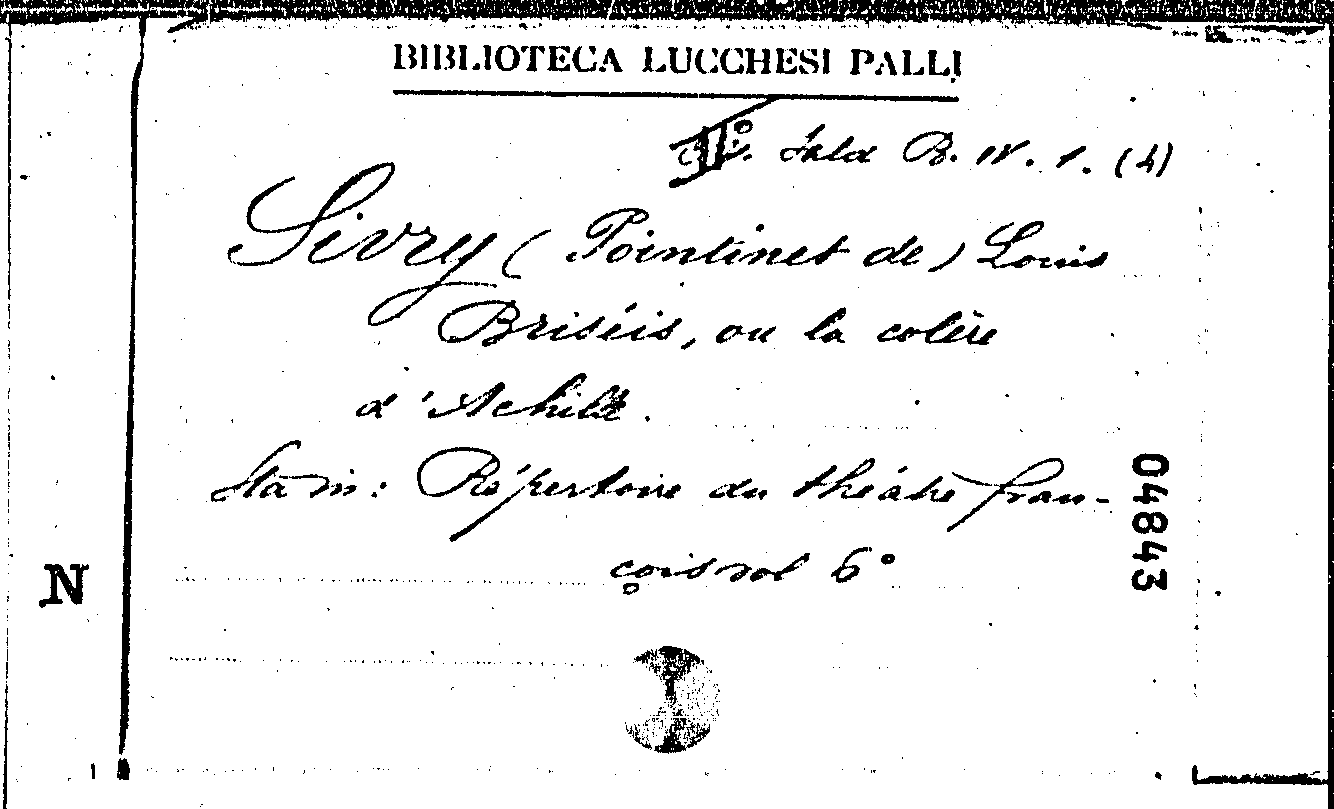 BIBLIOTECA LUCCHESI PALLI
II.ª Sala B. IV. 1. (4)
Sivry (Pointinet de) Louis
Briséis, ou la colère
d'Achille.
Sta in: Répertoire du théâtre fran-
çois vol 6°
04843
N